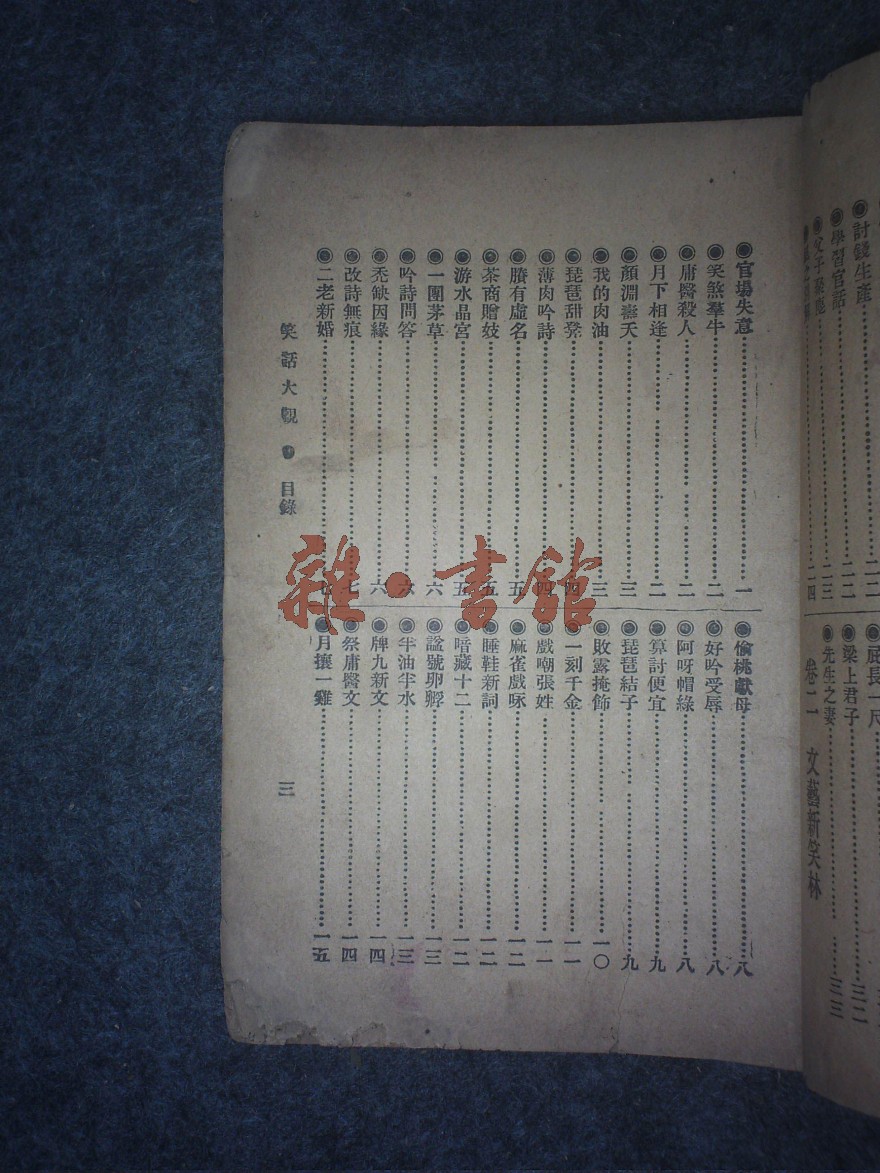 討錢生產
學習官話
二二
父子聚麀
二三
二四
屁長一尺
梁上君子
三二
先生之妻
三三
卷二 文藝新笑林
官場失意 一
笑煞羣牛 二
庸醫殺人 二
月下相逢 二
顏淵壽夭 三
我的肉油 三
琵琶甜凳 四
薄肉吟詩 四
賸有虛名 五
茶商贈妓 五
游水晶宮 五
一團茅草 六
吟詩問答 六
禿缺因緣 六
改詩無痕 七
二老新婚 七
偷桃獻母 八
好吟受辱 八
阿呀帽綠 八
算討便宜 九
琵琶結子 九
敗露掩飾 一〇
一刻千金 一一
戲嘲張姓 一一
麻雀戲咏 一二
睡鞋新詞 一二
暗藏十二 一二
諡號卵孵 一三
半油半水 一三
牌九新文 一四
祭庸醫文 一四
月攘一雞 一五
笑話大觀 目錄 三
雜·書館